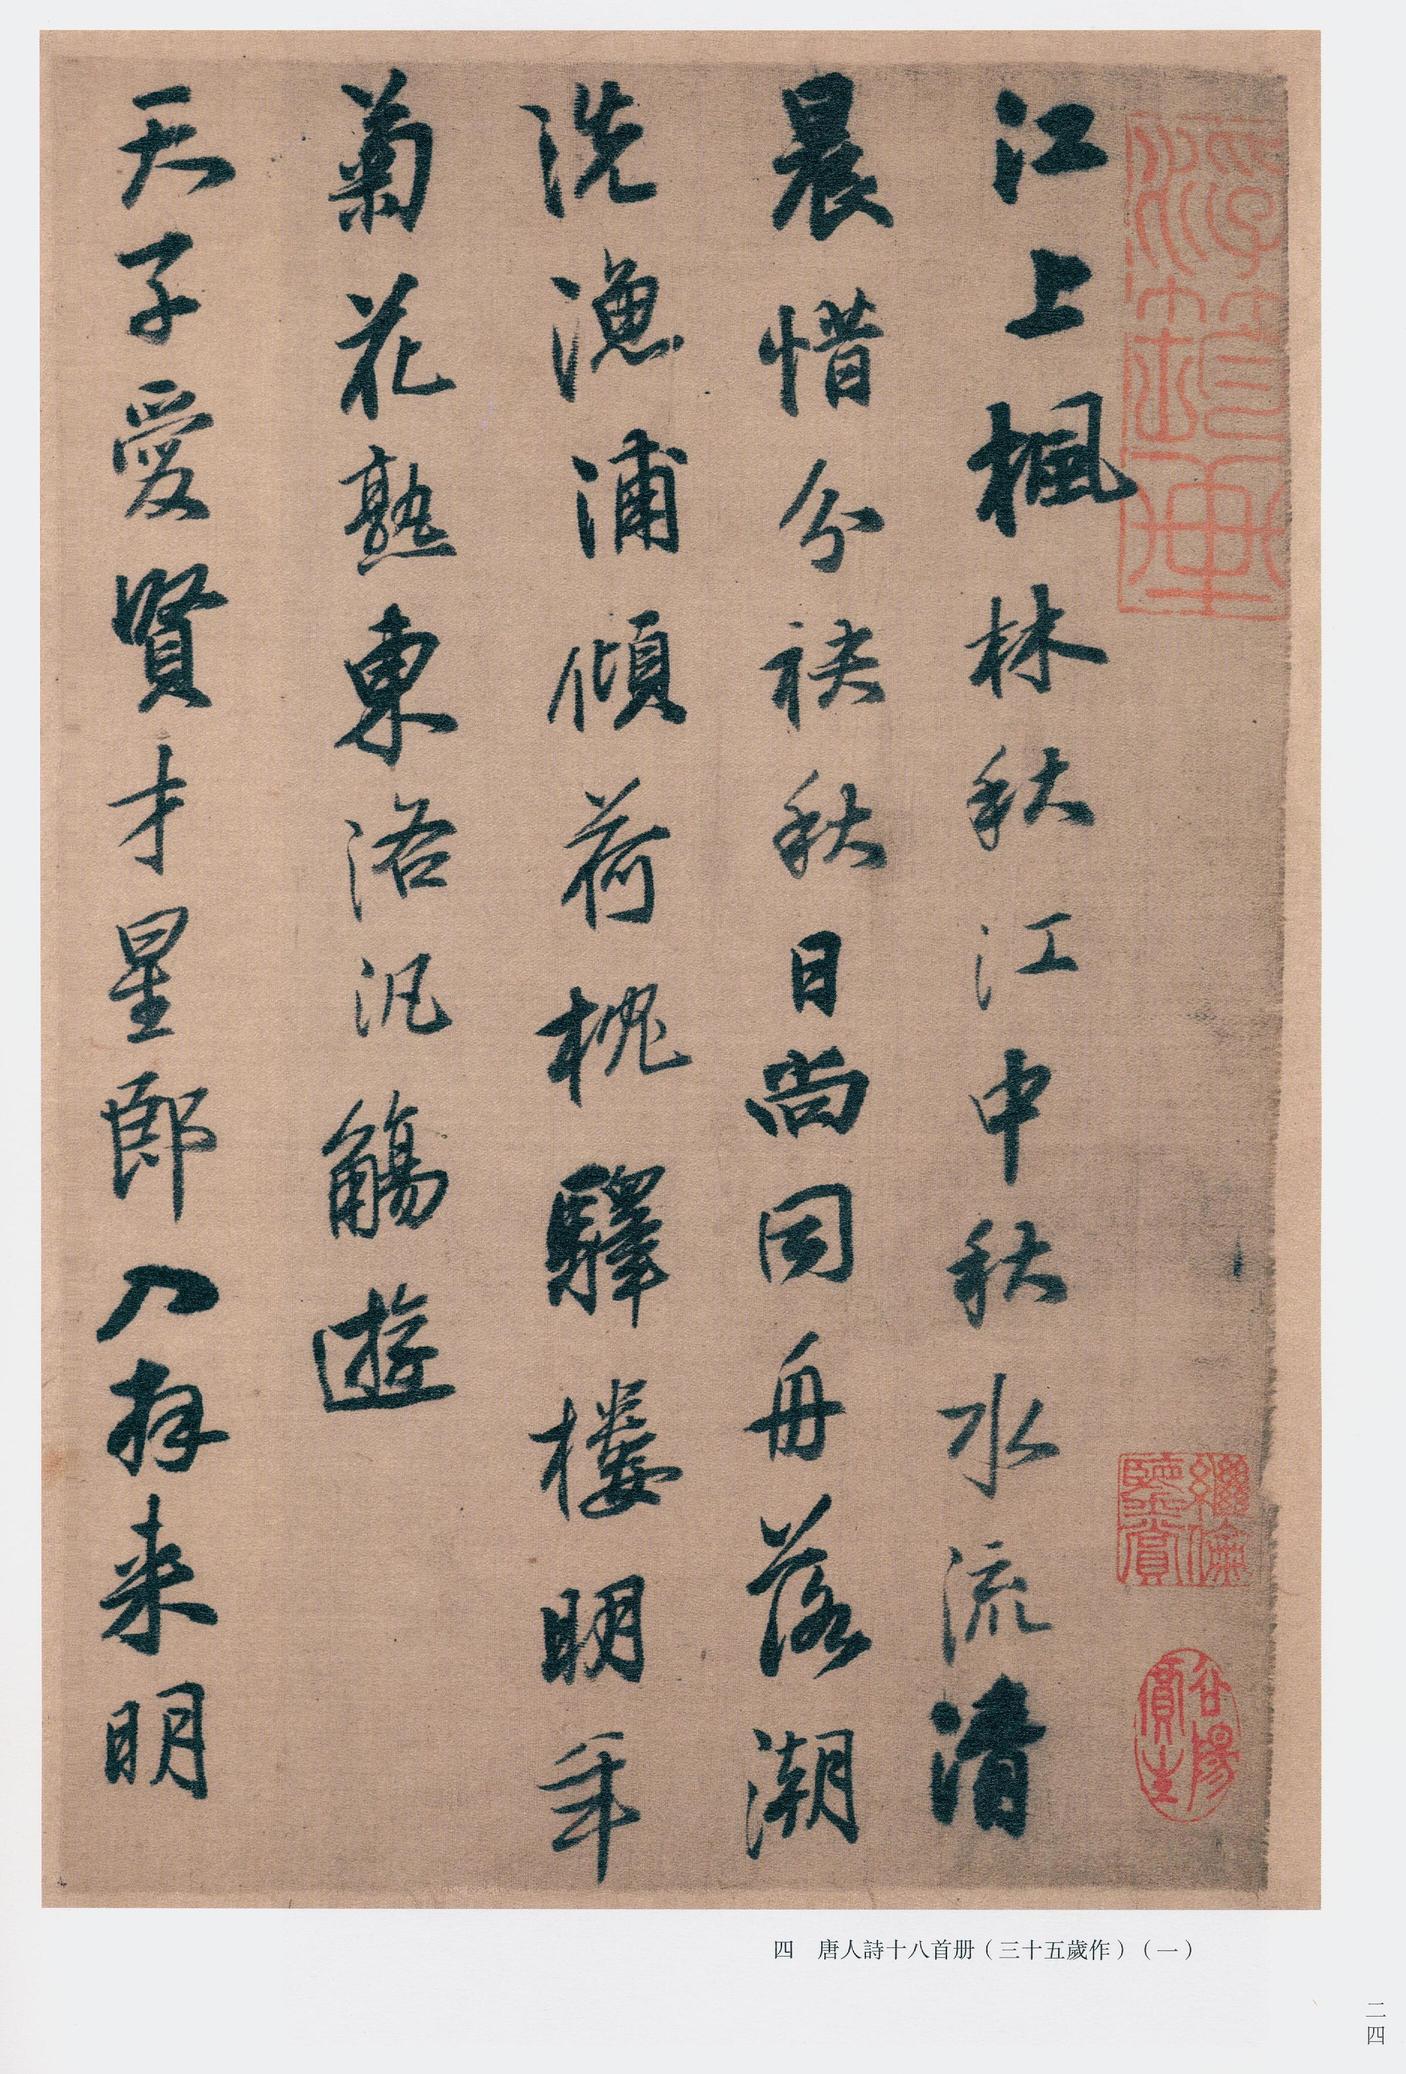 江上楓林秋江中秋水流清
晨惜分袂秋日尚同舟落潮
洗漁浦傾荷枕驛樓明年
菊花熟東洛泛觴遊
天子愛賢才星郎入拜来明
繼倫鑒賞
四　唐人詩十八首册（三十五歲作）（一）
二四